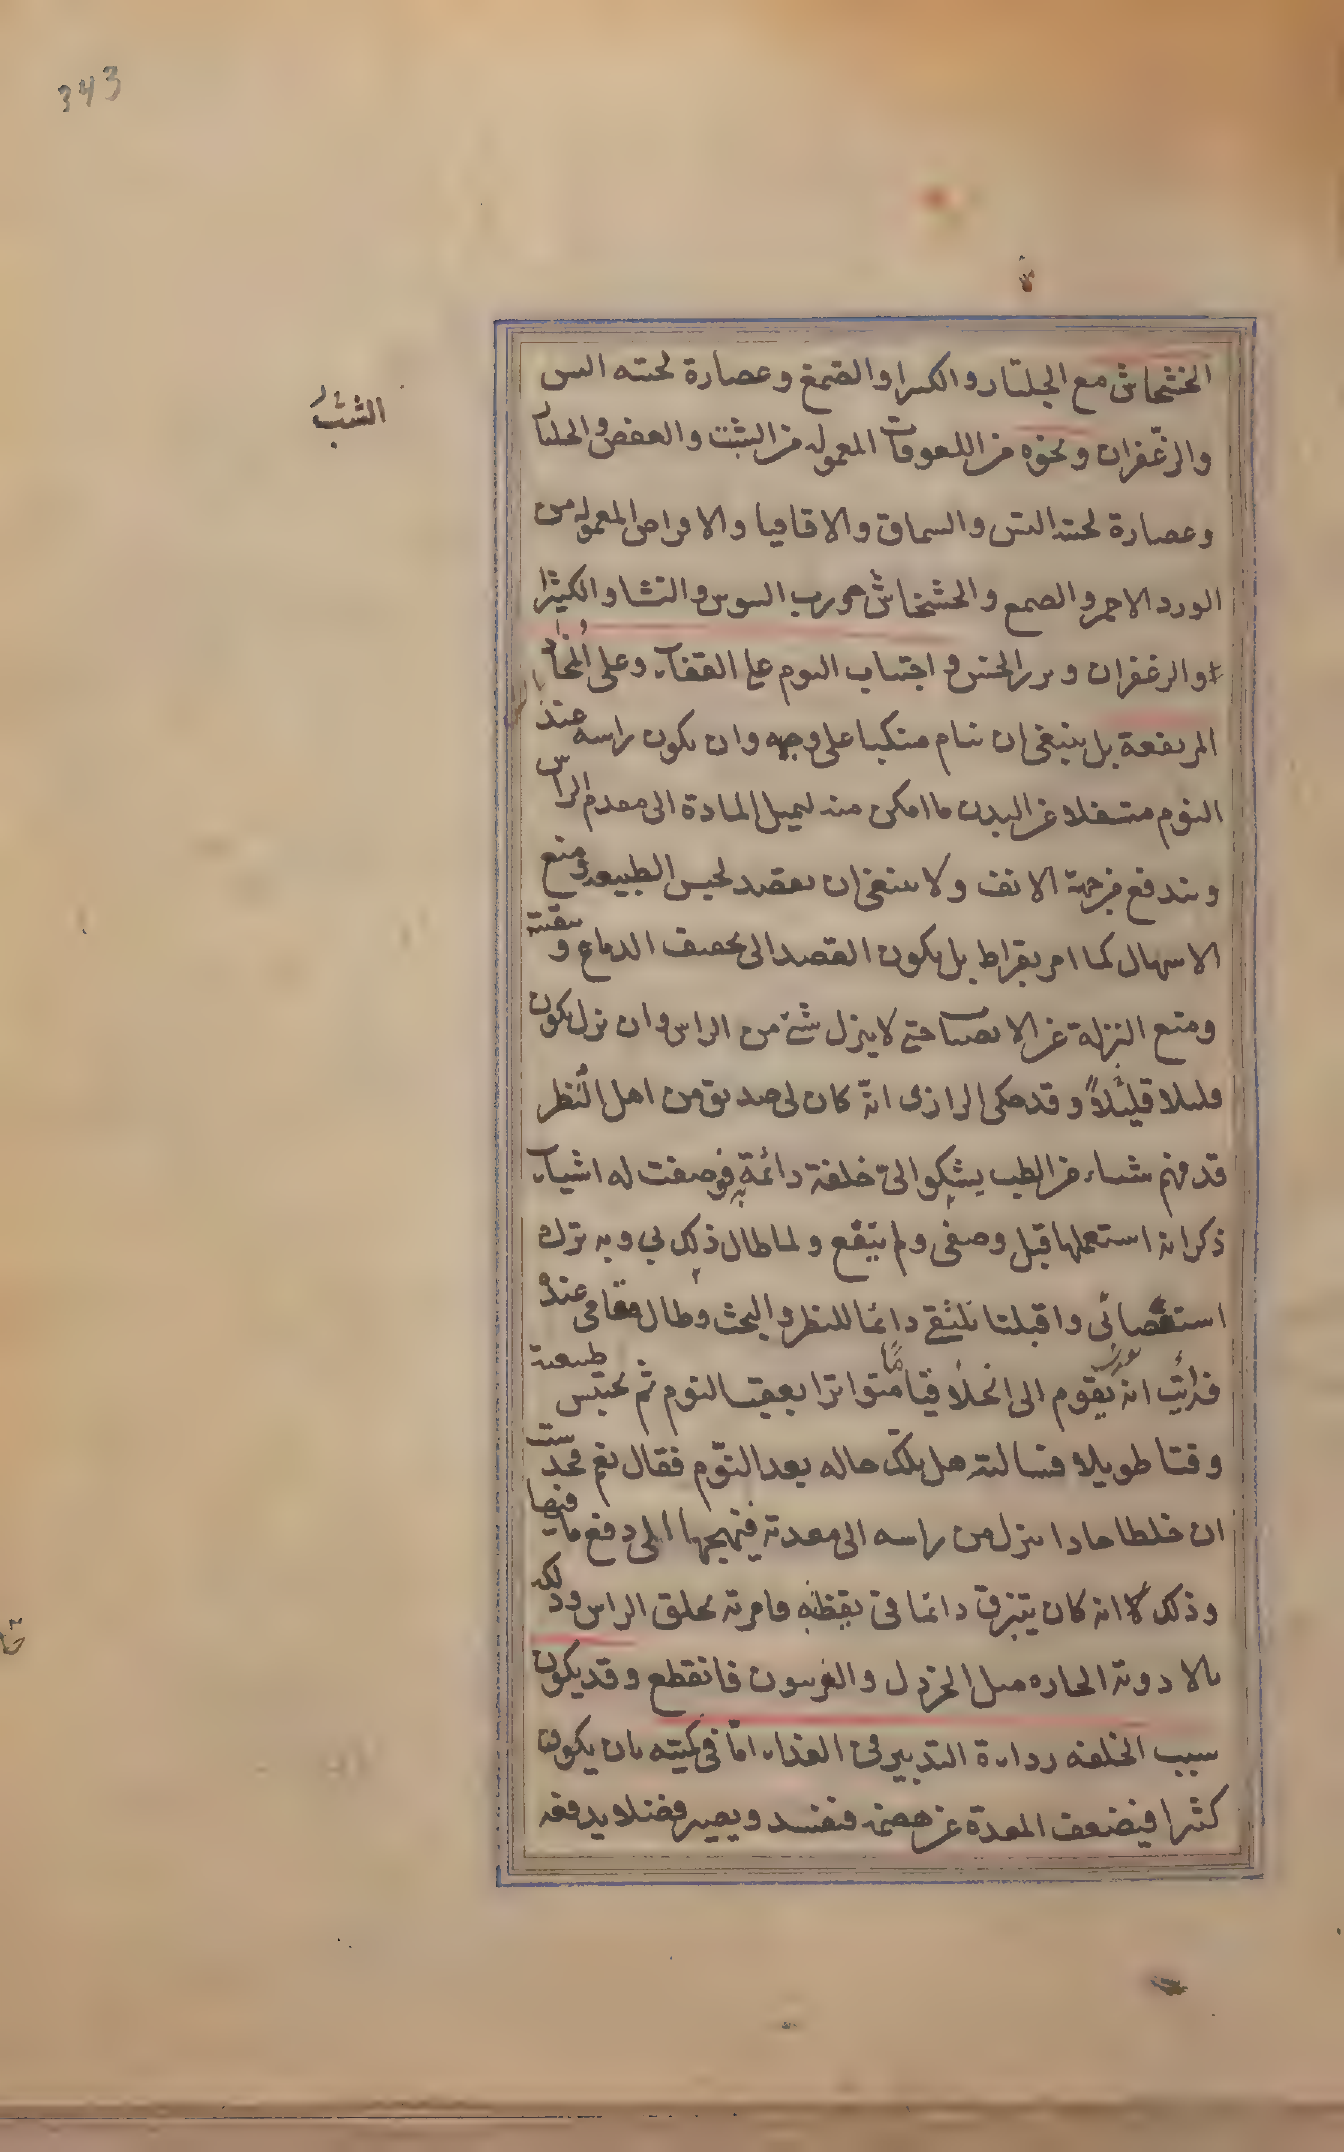 343
الشب
الخشخاش مع الجلنار والكثيرا والصمغ وعصارة لحيته التيس
والزعفران ونحوه من اللعوقات المعموله من الشبت والعفص والجلنار
وعصارة لحية التيس والسماق والاقاقيا والاقراص المعموله من
الورد الاحمر والصمغ والخشخاش ورب السوس والنشا والكثيرا
والزعفران وبزر الخس واجتناب النوم على القفا وعلى المخاد
المرتفعة بل ينبغي ان ينام منكبا على وجهه وان يكون راسه عند
النوم متسفلا عن البدن ما امكن منه ليميل المادة الى مقدم الراس
ويندفع من جهة الانف ولا ينبغي ان يقصد لحبس الطبيعه ومنع
الاسهال كما امر بقراط بل يكون القصد الى تجفيف الدماغ و تنقيته
ومنع النزلة عن الانصباب حتى لا ينزل شئ من الراس وان نزل يكون
قليلا قليلاً وقد حكى الرازى انه كان لى صديق من اهل النظر
قد فهم شياء من الطب يشكوا الىّ خلفة دائمة فوصفت له اشياء
ذكر انه استعملها قبل وصفى ولم ينتفع ولما طال ذلك بي وبه ترك
استقصائى واقبلنا نلتقى دائما للنظر والبحث وطال مقامى عنده
فرايت انه يقوم الى الخلا قياما متواترا بعقب النوم ثم تحتبس طبيعته
وقتا طويلا فسالته هل تلك حاله بعد النوم فقال نعم فحدست
ان خلطا حادا ينزل من راسه الى معدته فيهيجها الى دفع ما فيها
وذلك لانه كان يتبزق دائما فى يقظته فامرته بحلق الراس ودلكه
بالادوية الحاره مثل الخردل والفربيون فانقطع وقد يكون
سبب الخلفه رداءة التدبير فى الغذاء امّا فى كميته بان يكون
كثيرا فيضعف المعدة عن هضمه فيفسد ويصير فضلا يدفعه